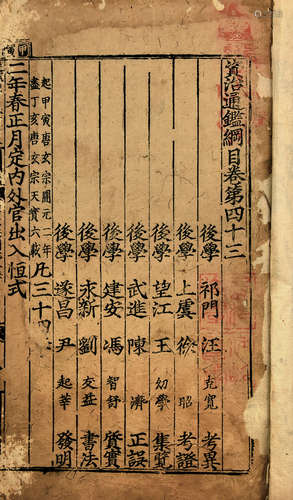 資治通鑑綱目卷第四十三
後學 祁門 汪 克寬 考異
後學 上虞 徐 昭 考證
後學 望江 王 幼學 集覽
後學 武進 陳 濟 正誤
後學 建安 馮 智舒 質實
後學 永新 劉 友益 書法
後學 遂昌 尹 起莘 發明
起甲寅唐玄宗開元二年
盡丁亥唐玄宗天寳六載 凡三十四
二年春正月定内外官出入恒式